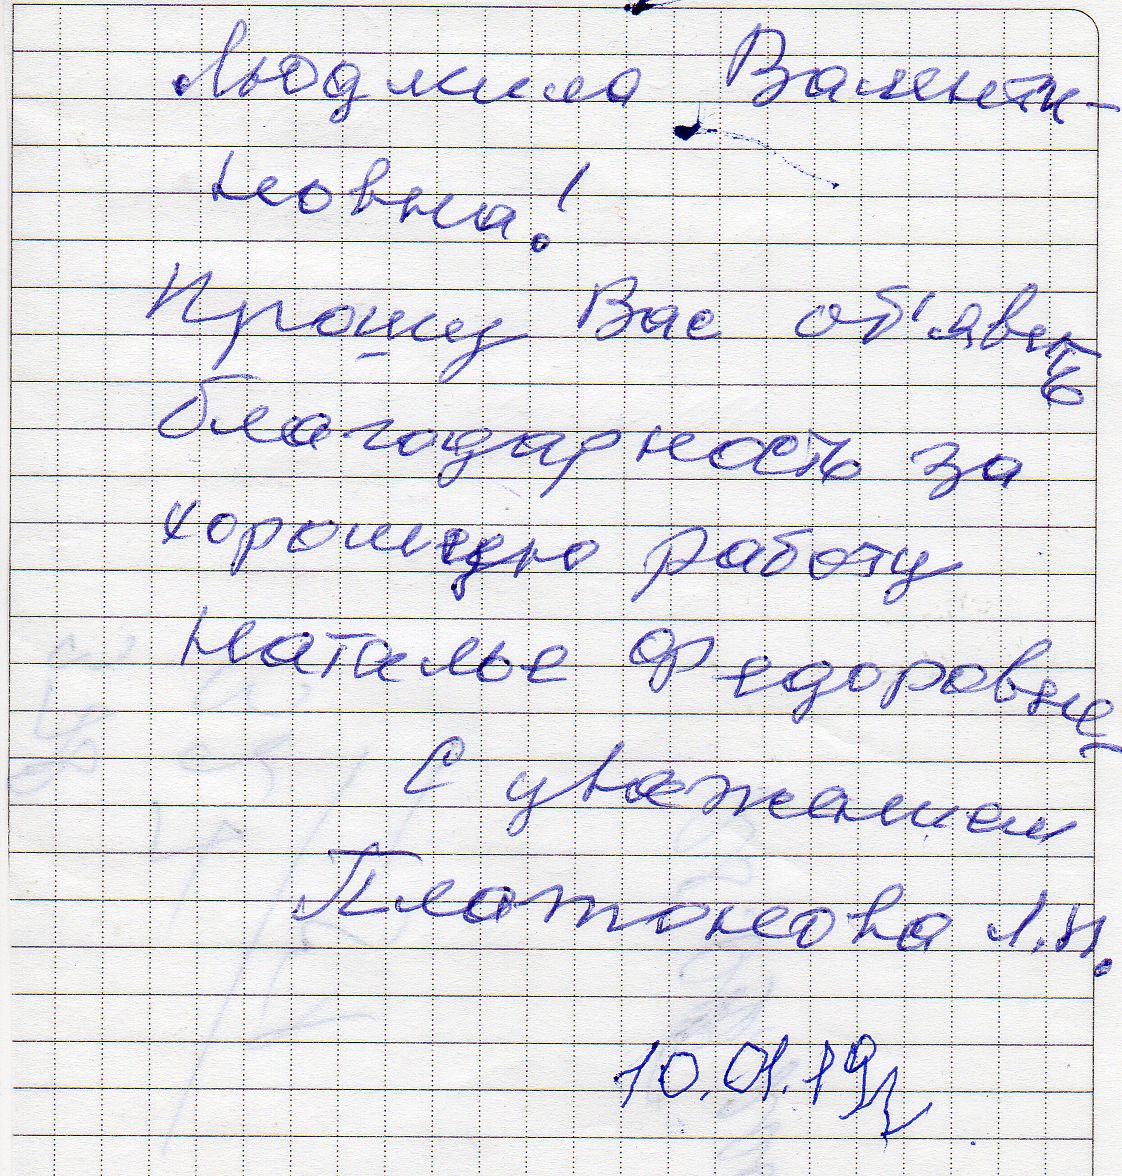 Людмила Валенти-
новна!
Прошу Вас об'явить
благодарность за
хорошую работу
Наталье Федоровне
С уважением
Платонова Л.И.
10.01.19г